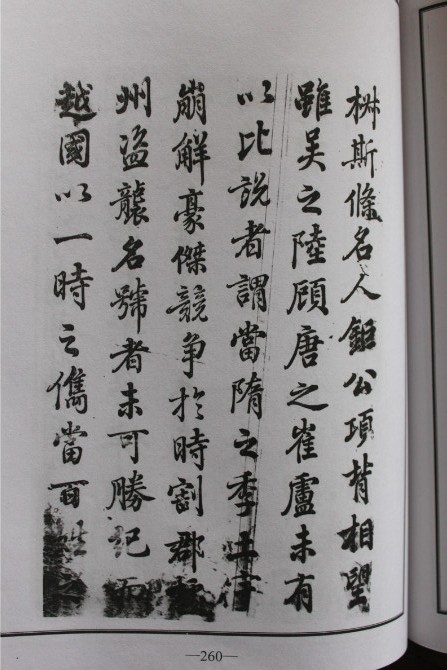 椒斯條名人鉅公項背相望
雖吳之陸顧唐之崔盧未有
以比說者謂當隋之季土宇
崩解豪傑競争於時割郡
州盜襲名號者未可勝記而
越國以一時之儁當百之
—260—